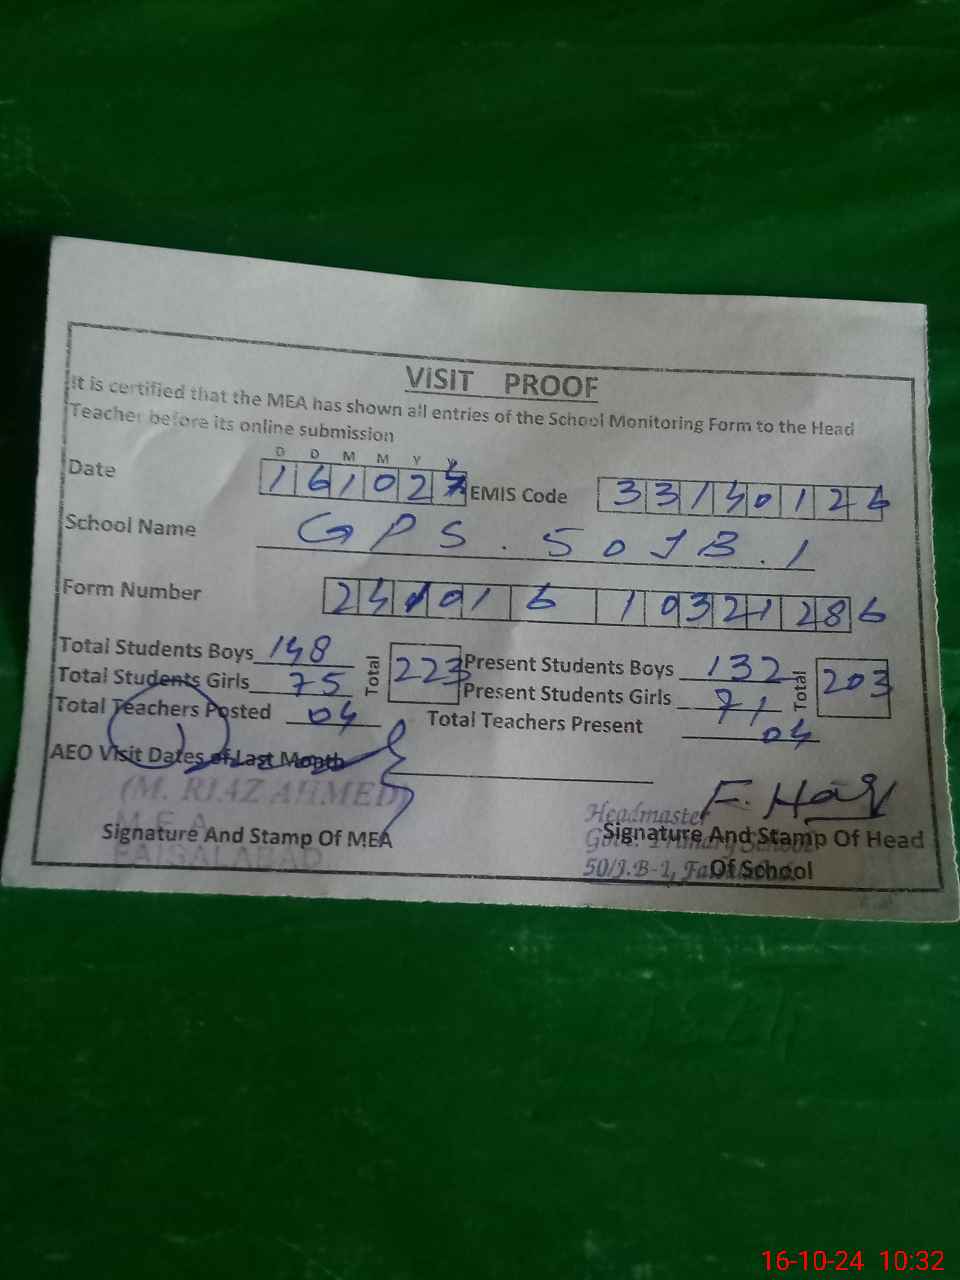 VISIT PROOF
It is certified that the MEA has shown all entries of the School Monitoring Form to the Head
Teacher before its online submission
D D M M Y Y
Date 16102 EMIS Code 33140126
School Name GPS. 50JB.1
Form Number 2410161032128 6
Total Students Boys 148 Total 223 Present Students Boys 132 Total 203
Total Students Girls 75 Present Students Girls 71
Total Teachers Posted 04 Total Teachers Present 04
AEO Visit Dates of Last Month
(M. RIAZ AHMED)
M E A
FAISALABAD
Signature And Stamp Of MEA
Headmaster
Govt. Primary School
50/J.B-1,
Signature And Stamp Of Head
Of School
16-10-24 10:32